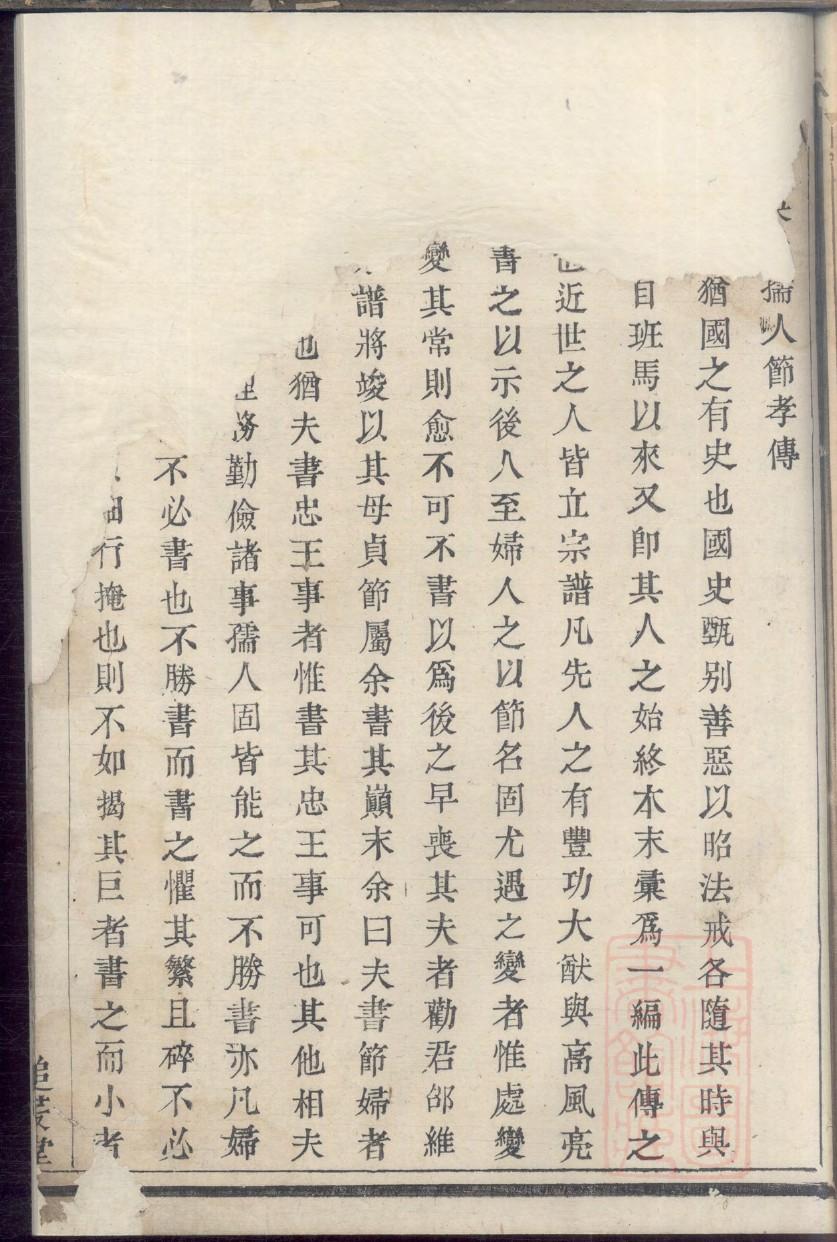 孺人節孝傳
猶國之有史也國史甄别善惡以昭法戒各隨其時與
自班馬以來又卽其人之始終本末彚爲一編此傳之
也近世之人皆立宗譜凡先人之有豐功大猷與高風亮
書之以示後人至婦人之以節名固尤遇之變者惟處變
變其常則愈不可不書以爲後之早喪其夫者勸君郃維
譜將竣以其母貞節屬余書其巔末余曰夫書節婦者
也猶夫書忠王事者惟書其忠王事可也其他相夫
務勤儉諸事孺人固皆能之而不勝書亦凡婦
不必書也不勝書而書之懼其繁且碎不必
細行掩也則不如揭其巨者書之而小者
追慕堂